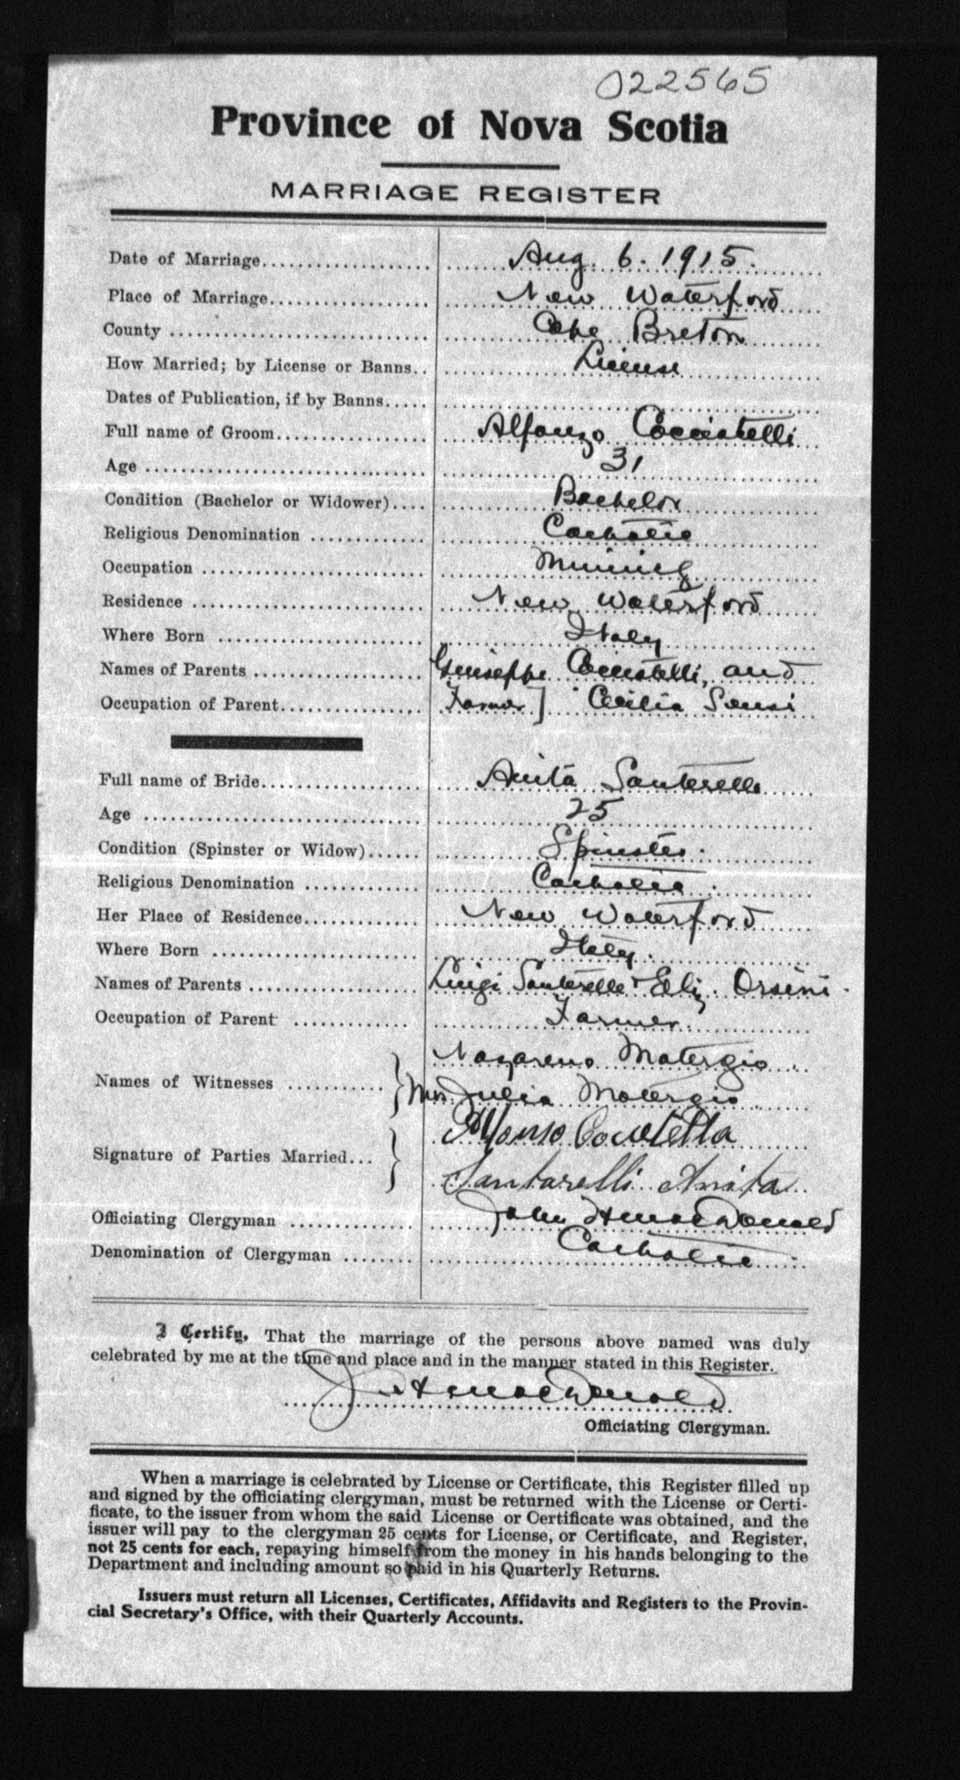 022565
Province of Nova Scotia
MARRIAGE REGISTER
Date of Marriage Aug. 6. 1915.
Place of Marriage New Waterford
County Cape Breton
How Married; by License or Banns License
Dates of Publication, if by Banns
Full name of Groom Alfonzo Cocciatelli
Age 31
Condition (Bachelor or Widower) Bachelor
Religious Denomination Catholic
Occupation Mining
Residence New Waterford
Where Born Italy
Names of Parents Guiseppe and
Occupation of Parent Farmer] Cecilia Sensi
Full name of Bride Anita Santerelli
Age 25
Condition (Spinster or Widow) Spinster.
Religious Denomination Catholic.
Her Place of Residence New Waterford
Where Born Italy.
Names of Parents Luigi Santerelle + Eliz. Orsini.
Occupation of Parent Farmer.
Nazareno Matergio
Names of Witnesses } Mrs. Julia Matergio
Signature of Parties Married }
Santarelli Anita
Officiating Clergyman John H MacDonald
Denomination of Clergyman Catholic.
I Certify, That the marriage of the persons above named was duly
celebrated by me at the time and place and in the manner stated in this Register.
J. H MacDonald
Officiating Clergyman.
When a marriage is celebrated by License or Certificate, this Register filled up
and signed by the officiating clergyman, must be returned with the License or Certi-
ficate, to the issuer from whom the said License or Certificate was obtained, and the
issuer will pay to the clergyman 25 cents for License, or Certificate, and Register,
not 25 cents for each, repaying himself from the money in his hands belonging to the
Department and including amount so paid in his Quarterly Returns.
Issuers must return all Licenses, Certificates, Affidavits and Registers to the Provin-
cial Secretary's Office, with their Quarterly Accounts.